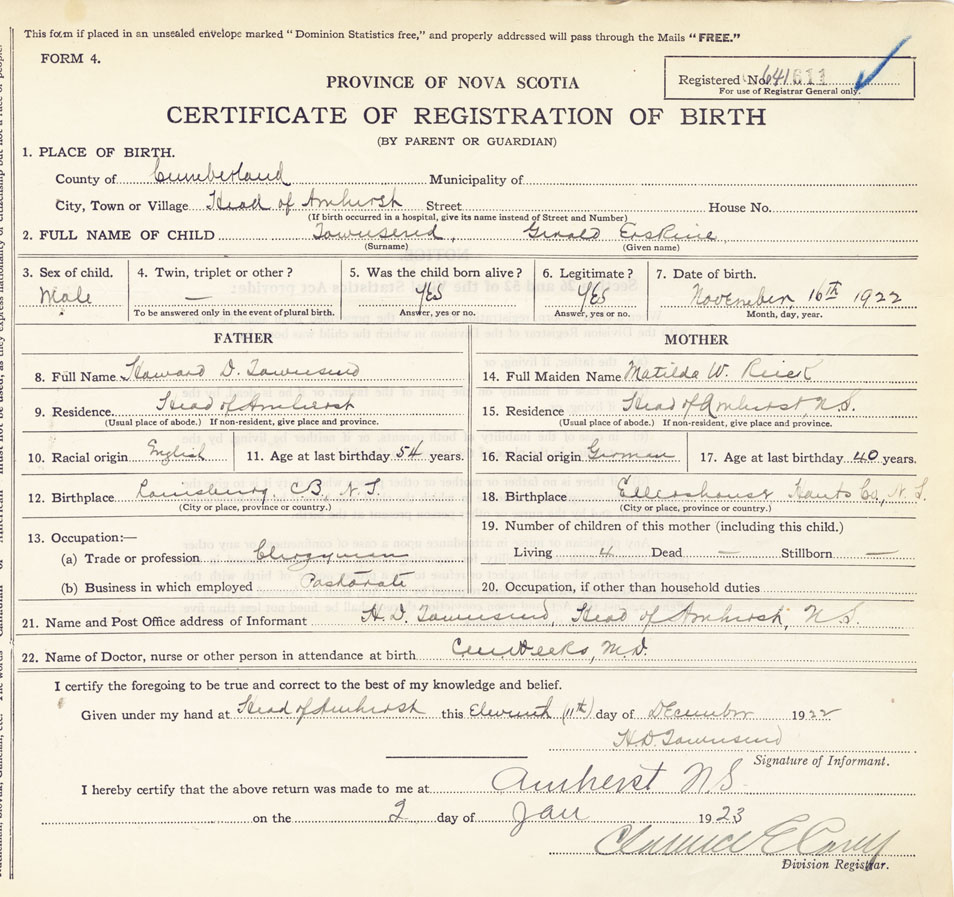 This form if placed in an unsealed envelope marked "Dominion Statistics free," and properly addressed will pass through the Mails "FREE."
FORM 4.
PROVINCE OF NOVA SCOTIA
Registered No. 641611
For use of Registrar General only.
CERTIFICATE OF REGISTRATION OF BIRTH
(BY PARENT OR GUARDIAN)
1. PLACE OF BIRTH.
County of Cumberland Municipality of
City, Town or Village Head of Amherst Street House No.
(If birth occurred in a hospital, give its name instead of Street and Number)
2. FULL NAME OF CHILD Townsend, Gerald Erskine
(Surname) (Given name)
3. Sex of child. 4. Twin, triplet or other? 5. Was the child born alive? 6. Legitimate? 7. Date of birth.
Male — YES YES November 16th 1922
To be answered only in the event of plural birth. Answer, yes or no. Answer, yes or no. Month, day, year.
FATHER MOTHER
8. Full Name Howard D. Townsend 14. Full Maiden Name Matilda W.
9. Residence. Head of Amherst 15. Residence Head of Amherst, N.S.
(Usual place of abode.) If non-resident, give place and province. (Usual place of abode.) If non-resident, give place and province.
10. Racial origin English 11. Age at last birthday 54 years. 16. Racial origin German 17. Age at last birthday 40 years.
12. Birthplace Louisburg, C.B., N.S. 18. Birthplace Ellershouse Hants Co., N.S.
(City or place, province or country.) (City or place, province or country.)
13. Occupation:— 19. Number of children of this mother (including this child.)
(a) Trade or profession Clergyman Living 4 Dead — Stillborn —
(b) Business in which employed Pastorate 20. Occupation, if other than household duties
21. Name and Post Office address of Informant H. D. Townsend, Head of Amherst, N.S.
22. Name of Doctor, nurse or other person in attendance at birth M.D.
I certify the foregoing to be true and correct to the best of my knowledge and belief.
Given under my hand at Head of Amherst this Eleventh (11th) day of December 1922
H.D. Townsend
Signature of Informant.
I hereby certify that the above return was made to me at Amherst N.S.
on the 2 day of Jan 1923
Clarence E
Division Registrar.